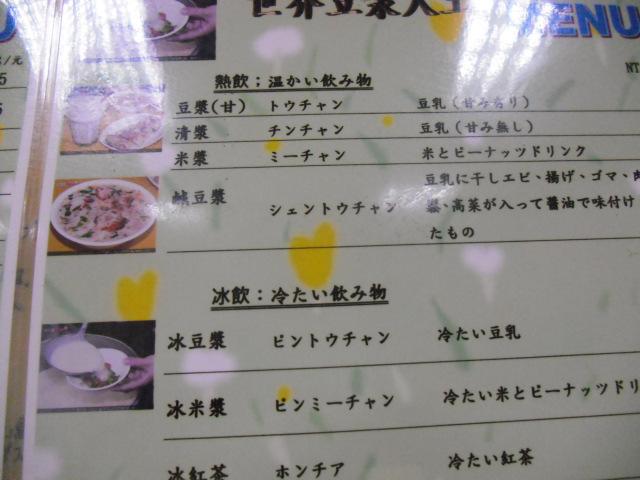 世界豆漿大王
MENU
NT
熱飲；温かい飲み物
豆漿(甘) トウチャン 豆乳(甘み有り)
清漿 チンチャン 豆乳(甘み無し)
米漿 ミーチャン 米とピーナッツドリンク
鹹豆漿 シェントウチャン 豆乳に干しエビ、揚げ、ゴマ、肉
髮、高菜が入って醤油で味付け
たもの
冰飲：冷たい飲み物
冰豆漿 ピントウチャン 冷たい豆乳
冰米漿 ピンミーチャン 冷たい米とピーナッツドリ
冰紅茶 ホンチア 冷たい紅茶